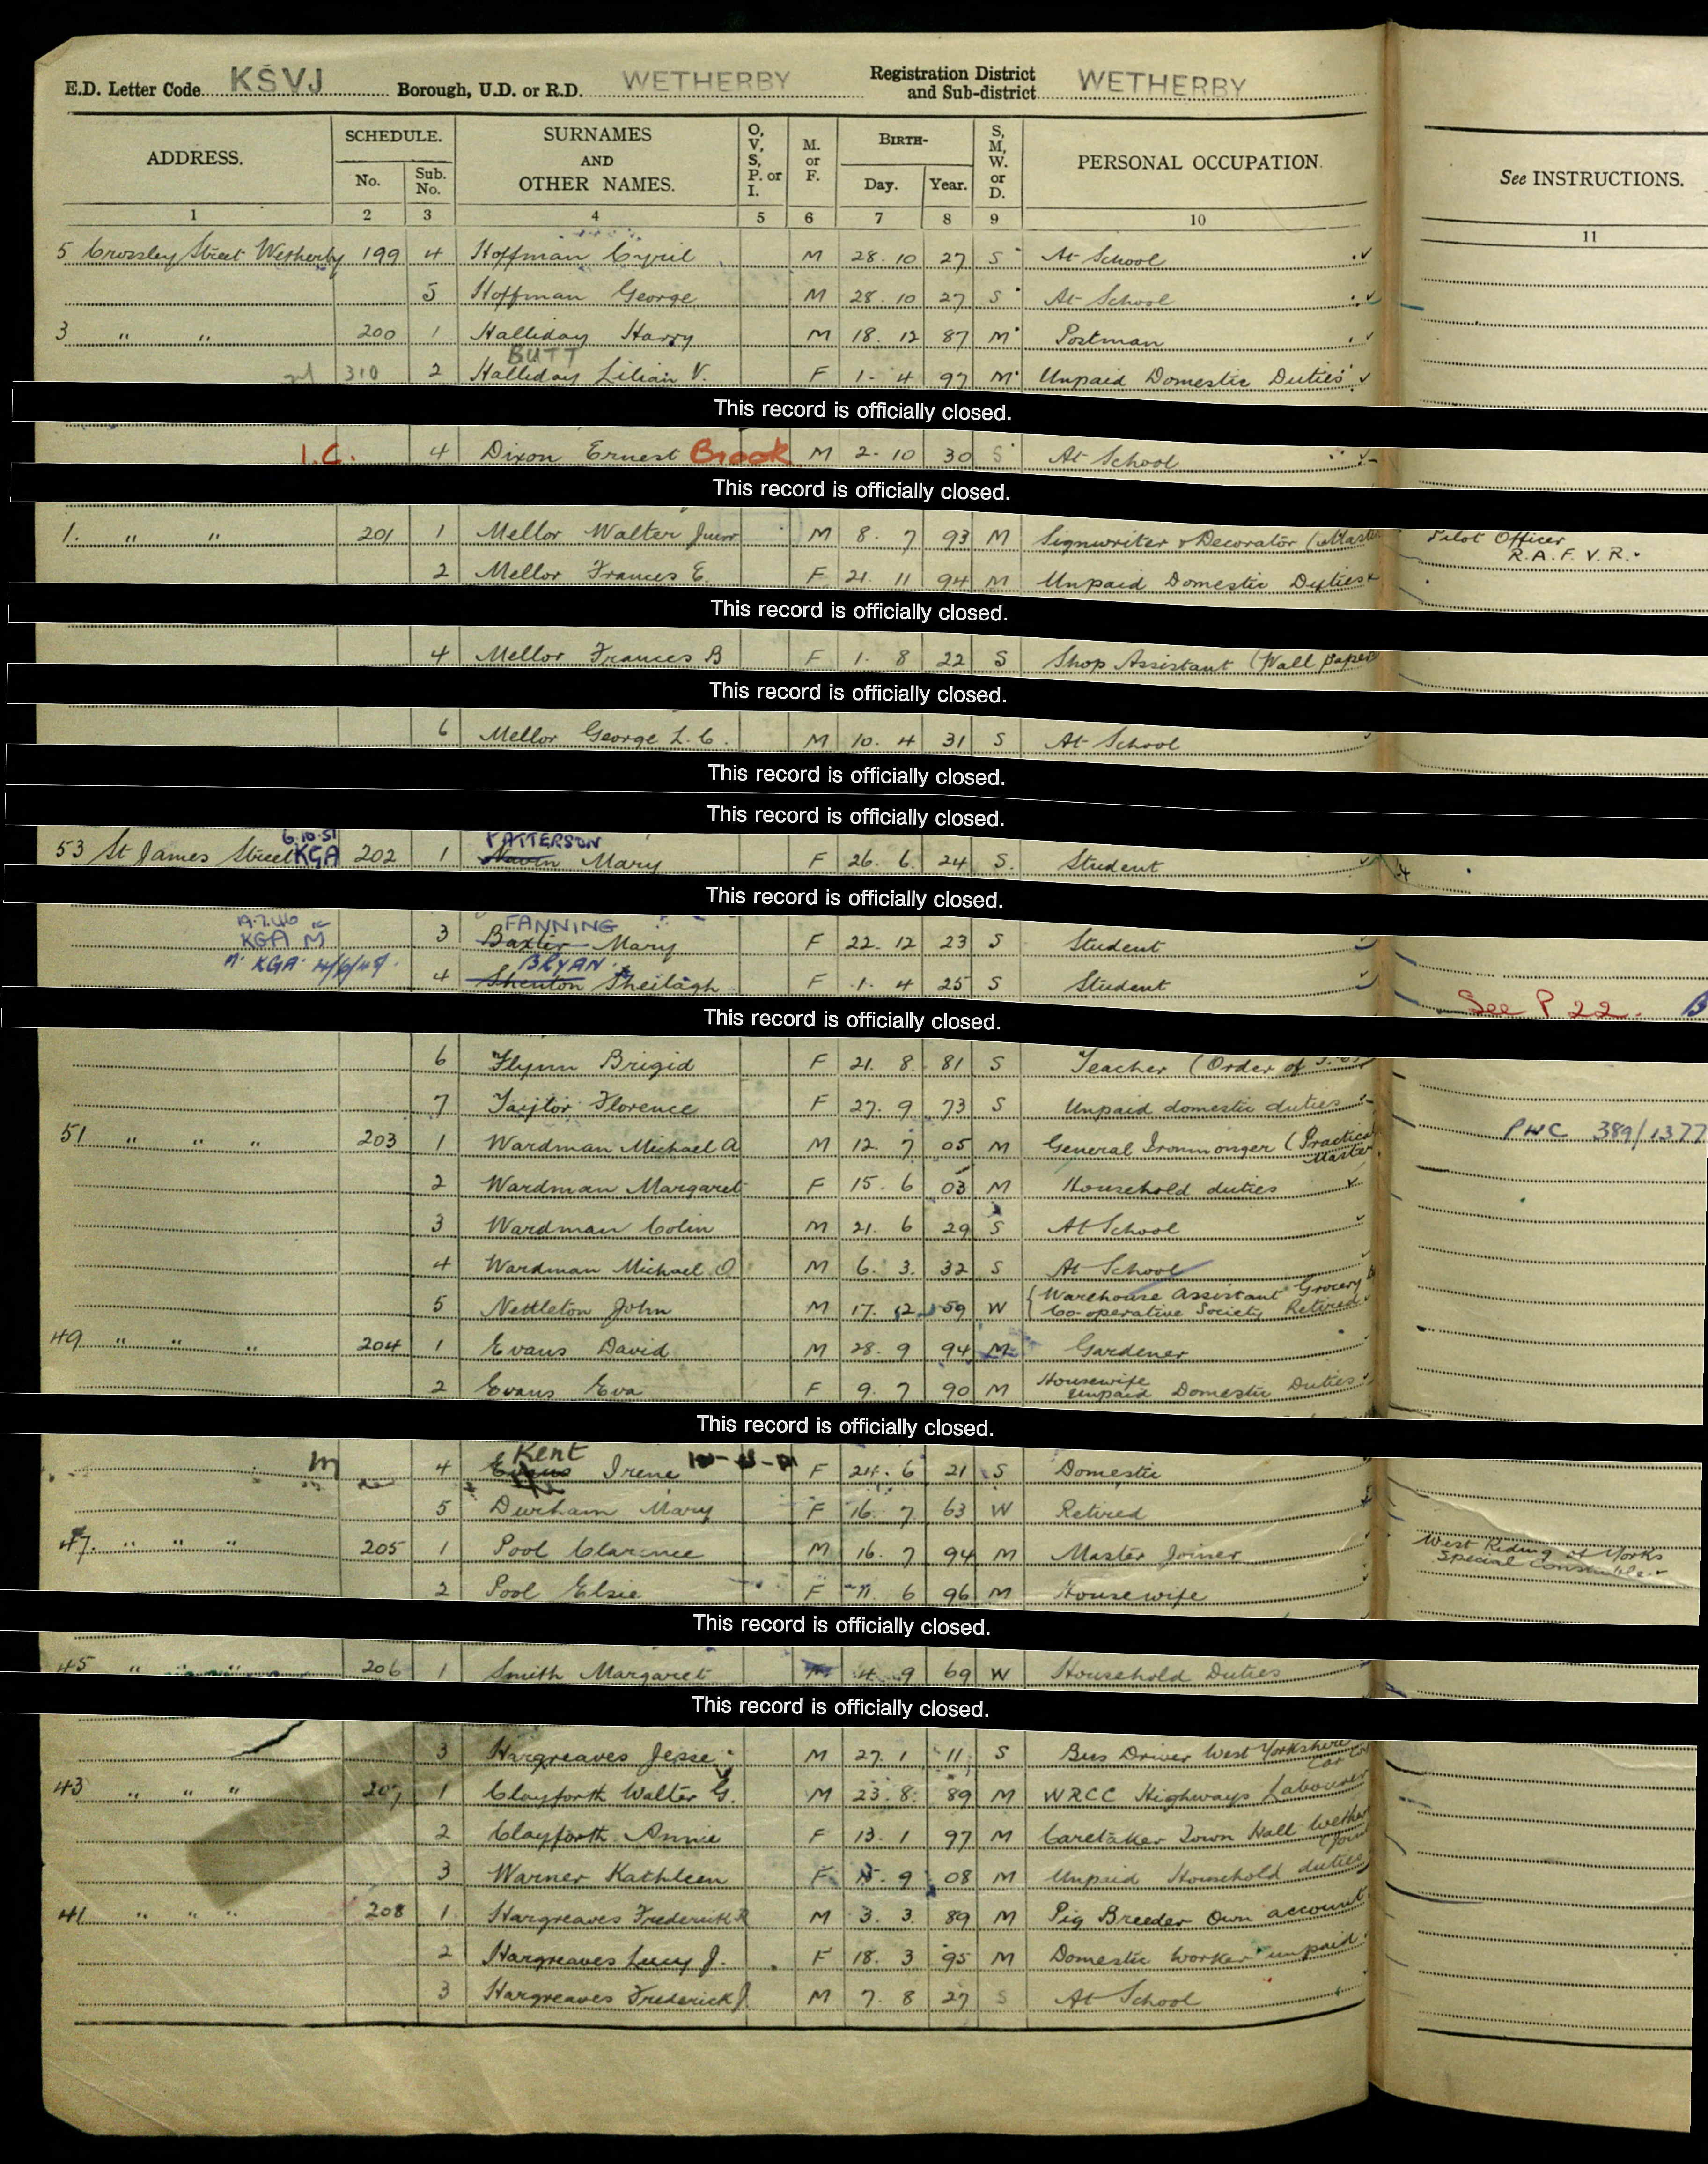 E.D. Letter Code KSVJ Borough, U.D. or R.D. WETHERBY Registration District and Sub-district WETHERBY
ADDRESS. SCHEDULE. No. Sub. No. SURNAMES AND OTHER NAMES. O, V, S, P. or I. M. or F. BIRTH- Day. Year. S, M, W. or D. PERSONAL OCCUPATION. See INSTRUCTIONS.
1 2 3 4 5 6 7 8 9 10 11
5 Crossley Street Wetherby 199 4 Hoffman Cyril M 28. 10 27 S At School
5 Hoffman George M 28. 10 27 S At School
3 " " 200 1 Halliday Harry M 18. 12 87 M Postman
BUTT
310 2 Halliday Lilian V. F 1. 4 97 M Unpaid Domestic Duties
This record is officially closed.
I.C. 4 Dixon Ernest Brook M 2. 10 30 S At School
This record is officially closed.
1. " " 201 1 Mellor Walter Junr M 8. 7 93 M Signwriter & Decorator (Master Pilot Officer
R.A.F.V.R.
2 Mellor Frances E. F 21. 11 94 M Unpaid Domestic Duties
This record is officially closed.
4 Mellor Frances B F 1. 8 22 S Shop Assistant (Wall paper
This record is officially closed.
6 Mellor George L. C. M 10. 4 31 S At School
This record is officially closed.
This record is officially closed.
6.10.51 PATTERSON
53 St James Street KGA 202 1 Navin Mary F 26. 6. 24 S. Student
This record is officially closed.
19.7.46 FANNING
KGA M 3 Baxter Mary F 22. 12 23 S Student
KGA BRYAN
4 Shenton Sheilagh F 1. 4 25 S Student
See P 22. B
This record is officially closed.
6 Flynn Brigid F 21. 8. 81 S Teacher (Order of
7 Taylor Florence F 27. 9 73 S Unpaid domestic duties
51 " " " 203 1 Wardman Michael A M 12. 7 05 M General Ironmonger (Practical Master PWC 389/1377
2 Wardman Margaret F 15. 6 03 M Household duties
3 Wardman Colin M 21. 6 29 S At School
4 Wardman Michael O M 6. 3. 32 S At School
5 Nettleton John M 17. 12 59 W Warehouse Assistant Grocery
Co-operative Society Retired
49 " " " 204 1 Evans David M 28. 9 94 M Gardener
2 Evans Eva F 9. 7 90 M Housewife
unpaid Domestic Duties
This record is officially closed.
Kent
M 4 Evans Irene F 24. 6 21 S Domestic
5 Durham Mary F 16. 7 63 W Retired
47. " " " 205 1 Pool Clarence M 16. 7 94 M Master Joiner West Riding of Yorks
Special Constable
2 Pool Elsie F 11. 6 96 M Housewife
This record is officially closed.
45 " " " 206 1 Smith Margaret 4. 9 69 W Household Duties
This record is officially closed.
3 Hargreaves Jesse M 27. 1 11 S Bus Driver West Yorkshire Car Co
43 " " " 207 1 Clayforth Walter G. M 23. 8. 89 M WRCC Highways Labourer
2 Clayforth Annie F 13. 1 97 M Caretaker Town Hall
3 Warner Kathleen F 15. 9 08 M Unpaid Household duties
41 " " " 208 1 Hargreaves Frederick R M 3. 3. 89 M Pig Breeder Own account
2 Hargreaves Lucy J. F 18. 3 95 M Domestic Worker unpaid
3 Hargreaves Frederick J. M 7. 8 27 S At School